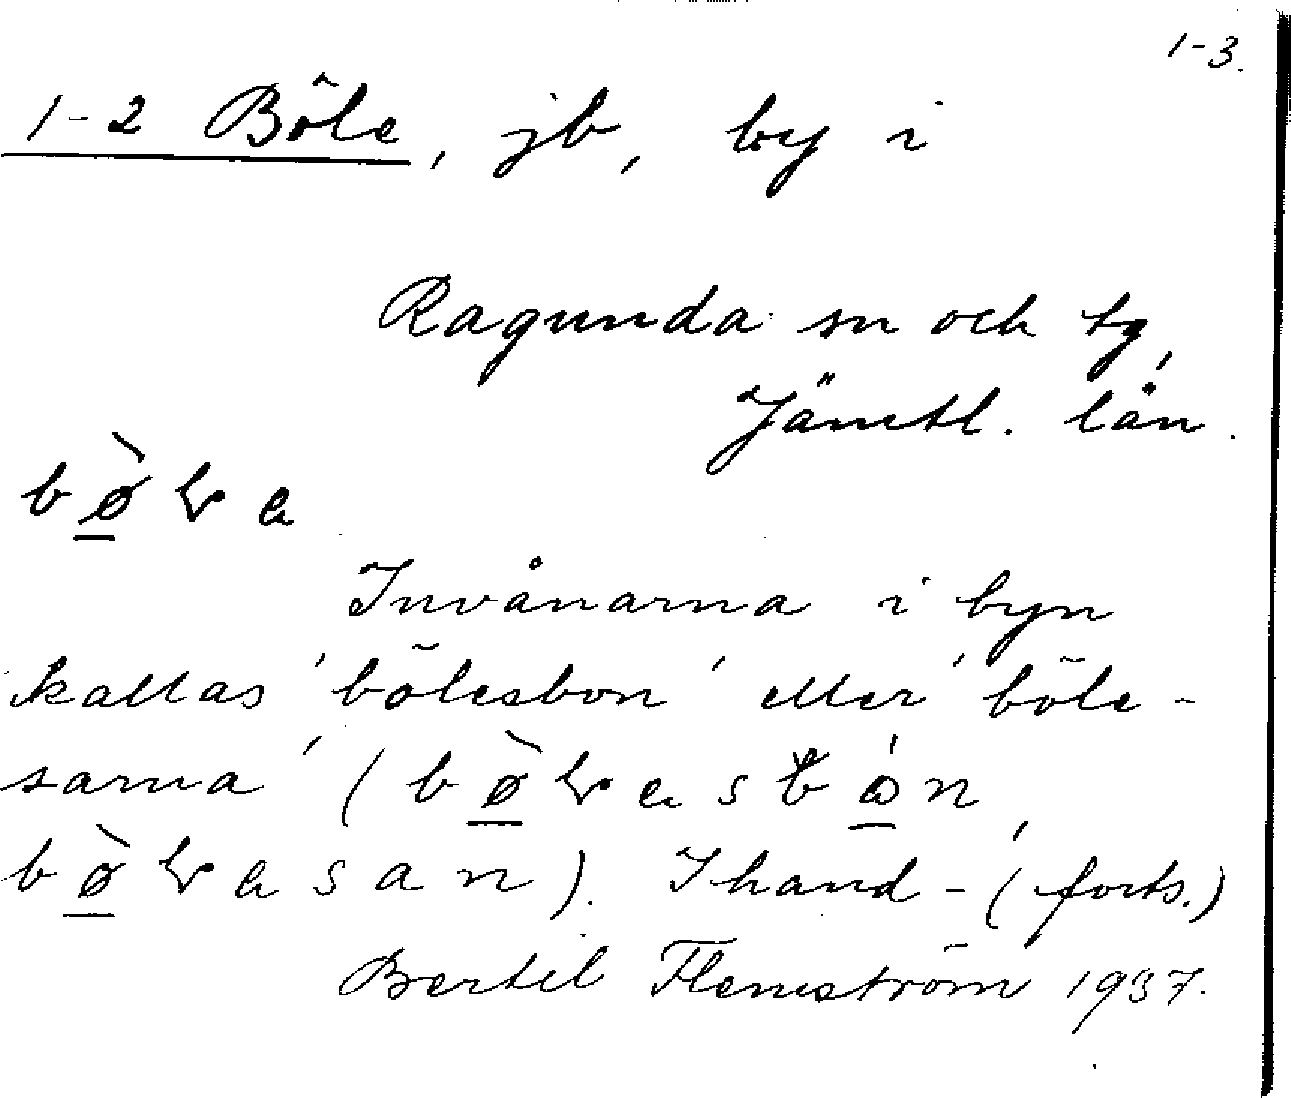 1-3.
1-2 Böle, jb, by i
Ragunda sn och tg,
Jämtl. län.
Invånarna i byn
kallas 'bölesbon' eller 'böle-
sarna' (
). I hand- (forts.)
Bertil Flemström 1937.